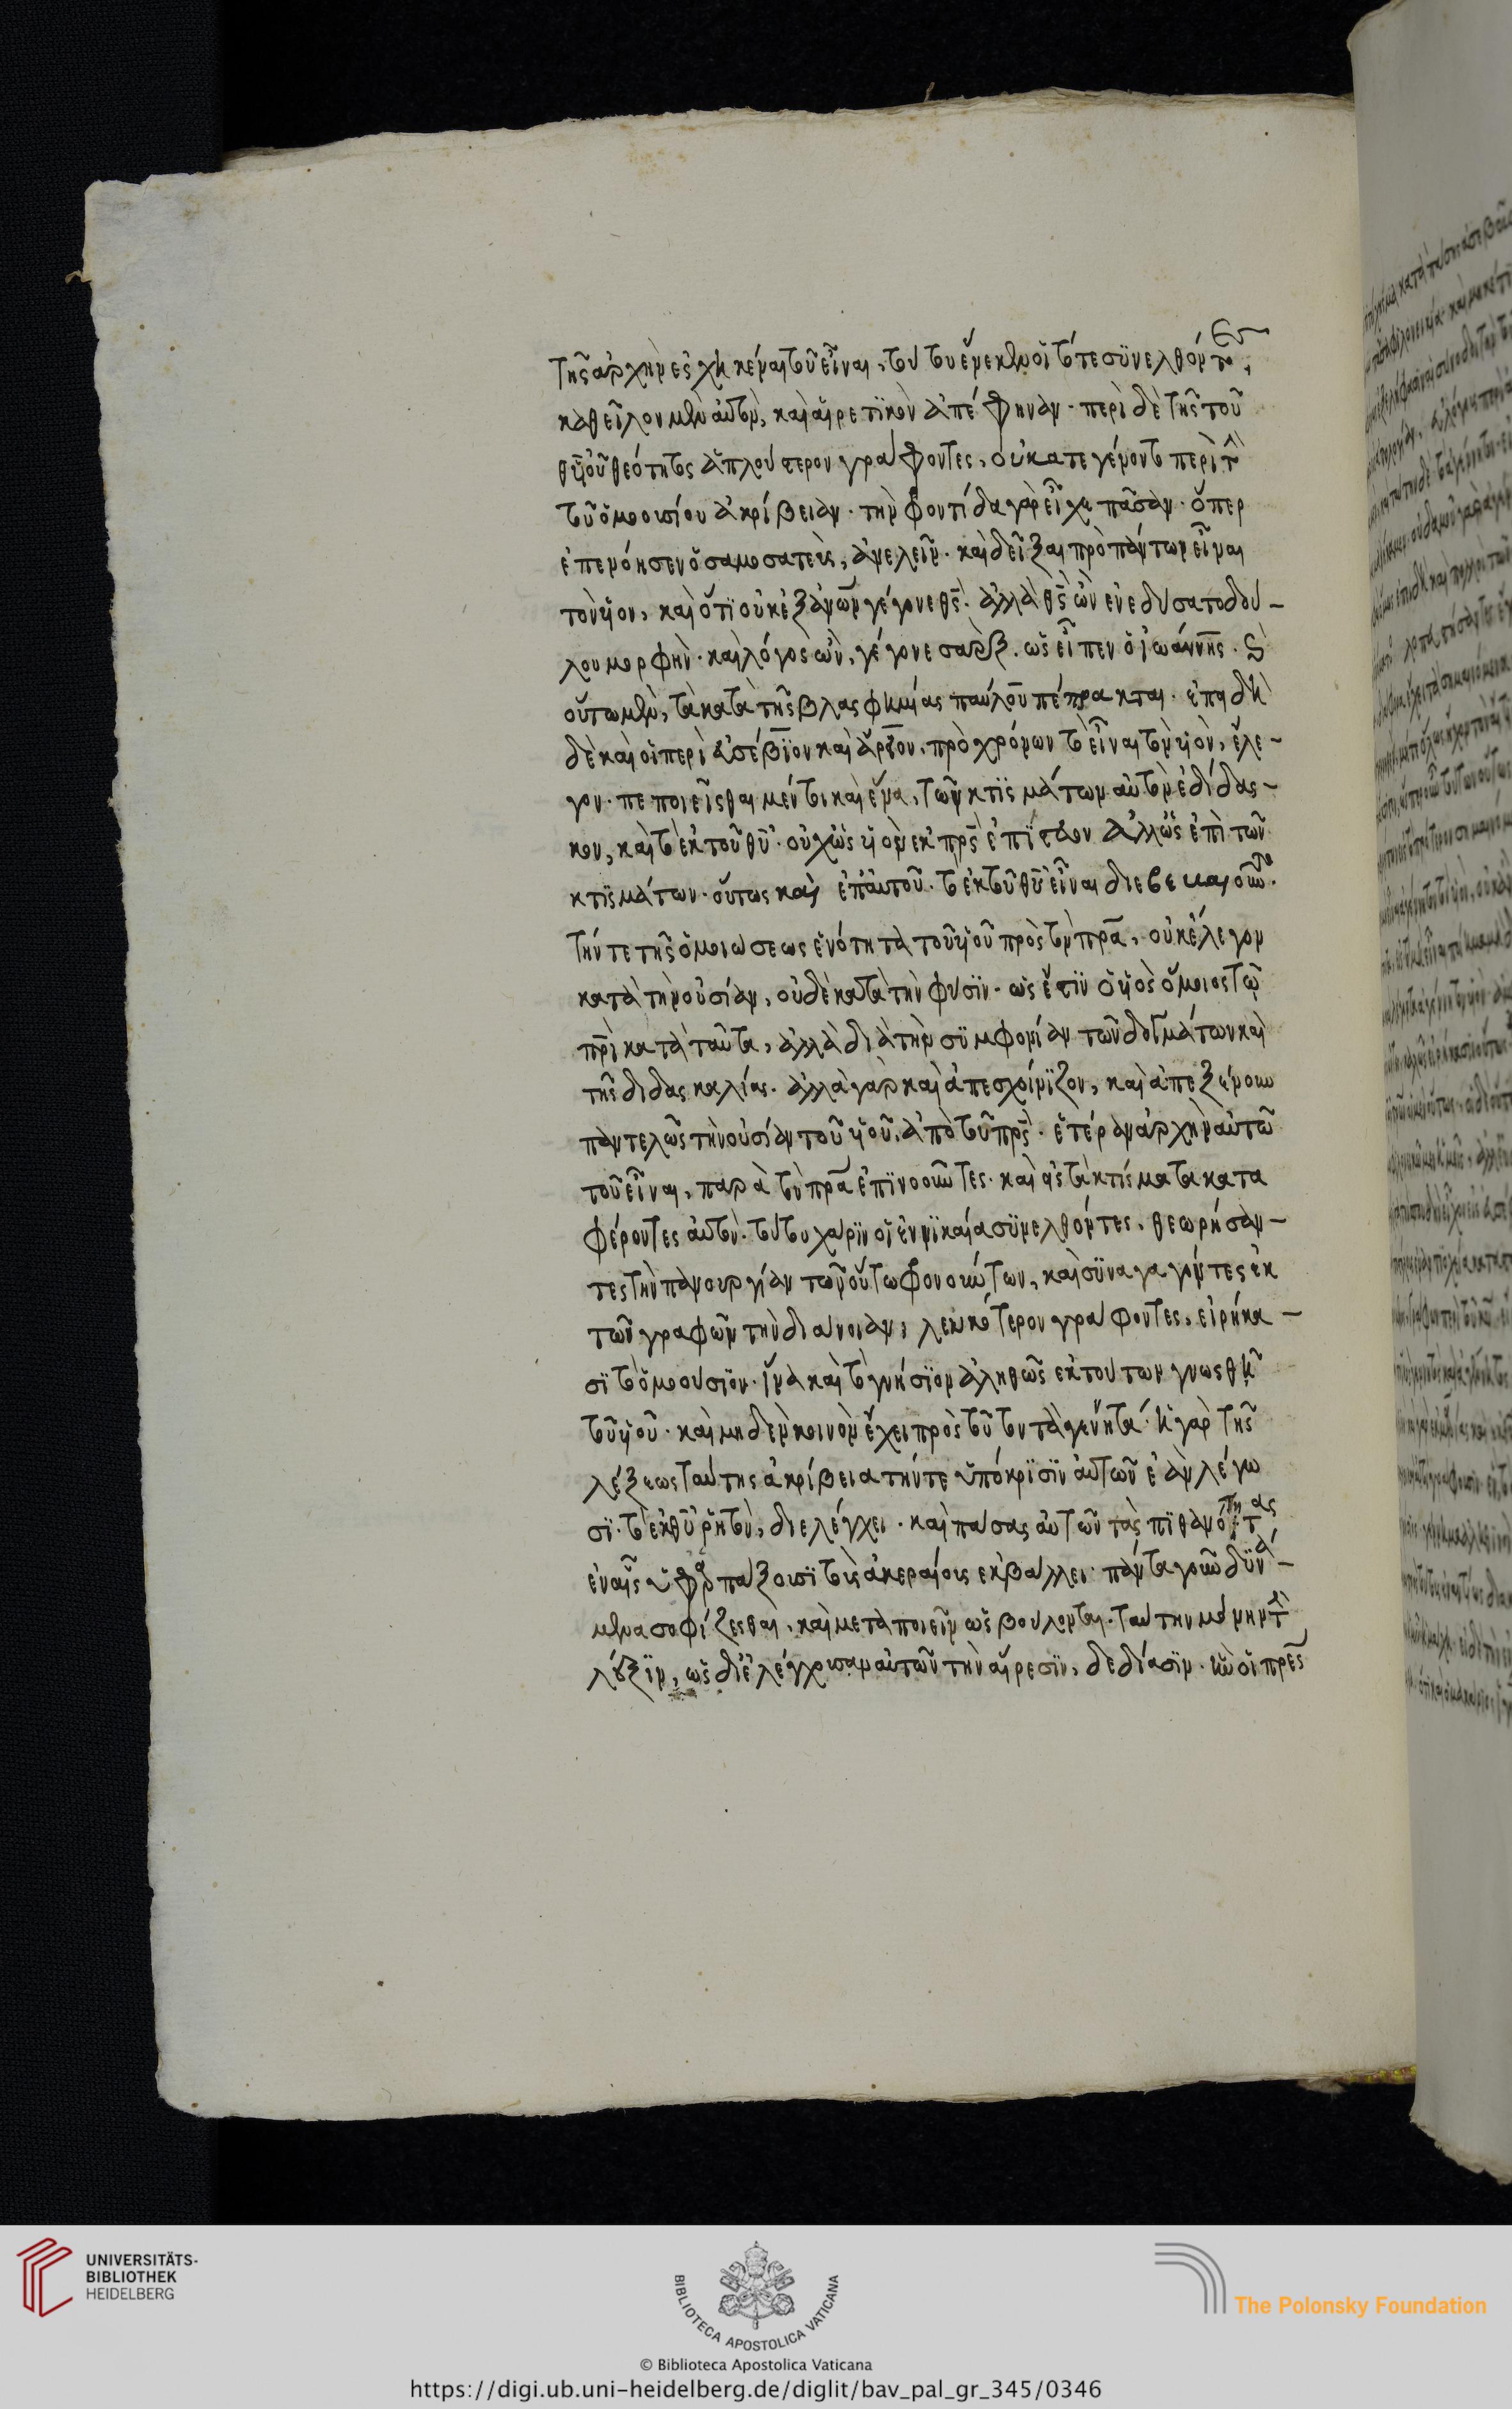 τῆς ἀρχὴν ἐσχηκέναι τοῦ εἶναι, τούτου ἕνεκεν οἱ τότε συνελθόντες,
καθεῖλον μὲν αὐτὸν, καὶ αἱρετικὸν ἀπέφηναν· περὶ δὲ τῆς τοῦ
θῡ υἱοῦ θεότητος ἁπλούστερον γράφοντες, οὐ κατεγένοντο περὶ τὴν
τοῦ ὁμοουσίου ἀκρίβειαν· τὴν φροντίδα γὰρ εἶχον πᾶσαν· ὅπερ
ἐπενόησεν ὁ σαμοσατεὺς, ἀνελεῖν· καὶ δεῖξαι πρὸ πάντων εἶναι
τὸν υἱὸν, καὶ ὅτι οὐκ ἐξ ἀνων γέγονε θς· ἀλλὰ θς ὢν ἐνεδύσατο δού-
λου μορφὴν· καὶ λόγος ὢν, γέγονε σάρξ· ὡς εἶπεν ὁ ἰωάννης· καὶ
οὕτω μὲν, τὰ κατὰ τῆς βλασφημίας παύλου πέπρακται· ἐπειδὴ
δὲ καὶ οἱ περὶ εὐσέβιον καὶ ἄρειον, πρὸ χρόνων τὸ εἶναι τὸν υἱὸν, ἔλε-
γον· πεποιεῖσθαι μέντοι καὶ ἕνα, τῶν κτισμάτων αὐτὸν ἐδίδασ-
κον, καὶ τὸ ἐκ τοῦ θῡ· οὐχ ὡς υἱὸν ἐκ πρς ἐπίστευον ἀλλ' ὡς ἐπὶ τῶν
κτισμάτων· οὕτως καὶ ἐπ' αὐτοῦ· τὸ ἐκ τοῦ θῡ εἶναι διεβεβαιοῦντο·
τήν τε τῆς ὁμοιώσεως ἑνότητα τοῦ υἱοῦ πρὸς τὸν πρα, οὐκ ἔλεγον
κατὰ τὴν οὐσίαν, οὐδὲ κατὰ τὴν φύσιν· ὡς ἔστιν ὁ υἱὸς ὅμοιος τῷ
πρι κατὰ ταῦτα, ἀλλὰ διὰ τὴν συμφωνίαν τῶν δογμάτων καὶ
τῆς διδασκαλίας· ἀλλὰ γὰρ καὶ ἀπεσχοίνιζον, καὶ ἀπεξένουν
παντελῶς τὴν οὐσίαν τοῦ υἱοῦ, ἀπὸ τοῦ πρς· ἑτέραν ἀρχὴν αὐτῶ
τοῦ εἶναι, παρὰ τὸν πρα ἐπινοοῦντες· καὶ εἰς τὰ κτίσματα κατα
φέροντες αὐτὸν· τούτου χάριν οἱ ἐν νικαία συνελθόντες, θεωρήσαν-
τες τὴν πανουργίαν τῶν οὕτω φρονούντων, καὶ συναγαγόντες ἐκ
τῶν γραφῶν τὴν διάνοιαν, λευκότερον γράφοντες, εἰρήκα-
σι τὸ ὁμοούσιον· ἵνα καὶ τὸ γνήσιον ἀληθῶς ἐκ τούτων γνωσθῆ
τοῦ υἱοῦ· καὶ μηδὲν κοινὸν ἔχει πρὸς τοῦτον τὰ γενητά· ἡ γὰρ τῆς
λέξεως ταύτης ἀκρίβεια τήν τε ὑπόκρισιν αὐτῶν ἐὰν λέγω
σι· τὸ ἐκ θῡ ῥητὸν, διελέγχει· καὶ πάσας αὐτῶν τὰς πιθανότητας
ἐν αἷς ὑφαρπάζουσι τοὺς ἀκεραίους ἐκβάλλει· πάντα γοῦν δυνά-
μενα σοφίζεσθαι, καὶ μεταποιεῖν ὡς βούλονται, ταύτην μόνην τὴν
λέξιν, ὡς διελέγχουσαν αὐτῶν τὴν αἵρεσιν, δεδίασιν· ἣν οἱ πρες
UNIVERSITÄTS-
BIBLIOTHEK
HEIDELBERG
BIBLIOTECA APOSTOLICA VATICANA
The Polonsky Foundation
© Biblioteca Apostolica Vaticana
https://digi.ub.uni-heidelberg.de/diglit/bav_pal_gr_345/0346